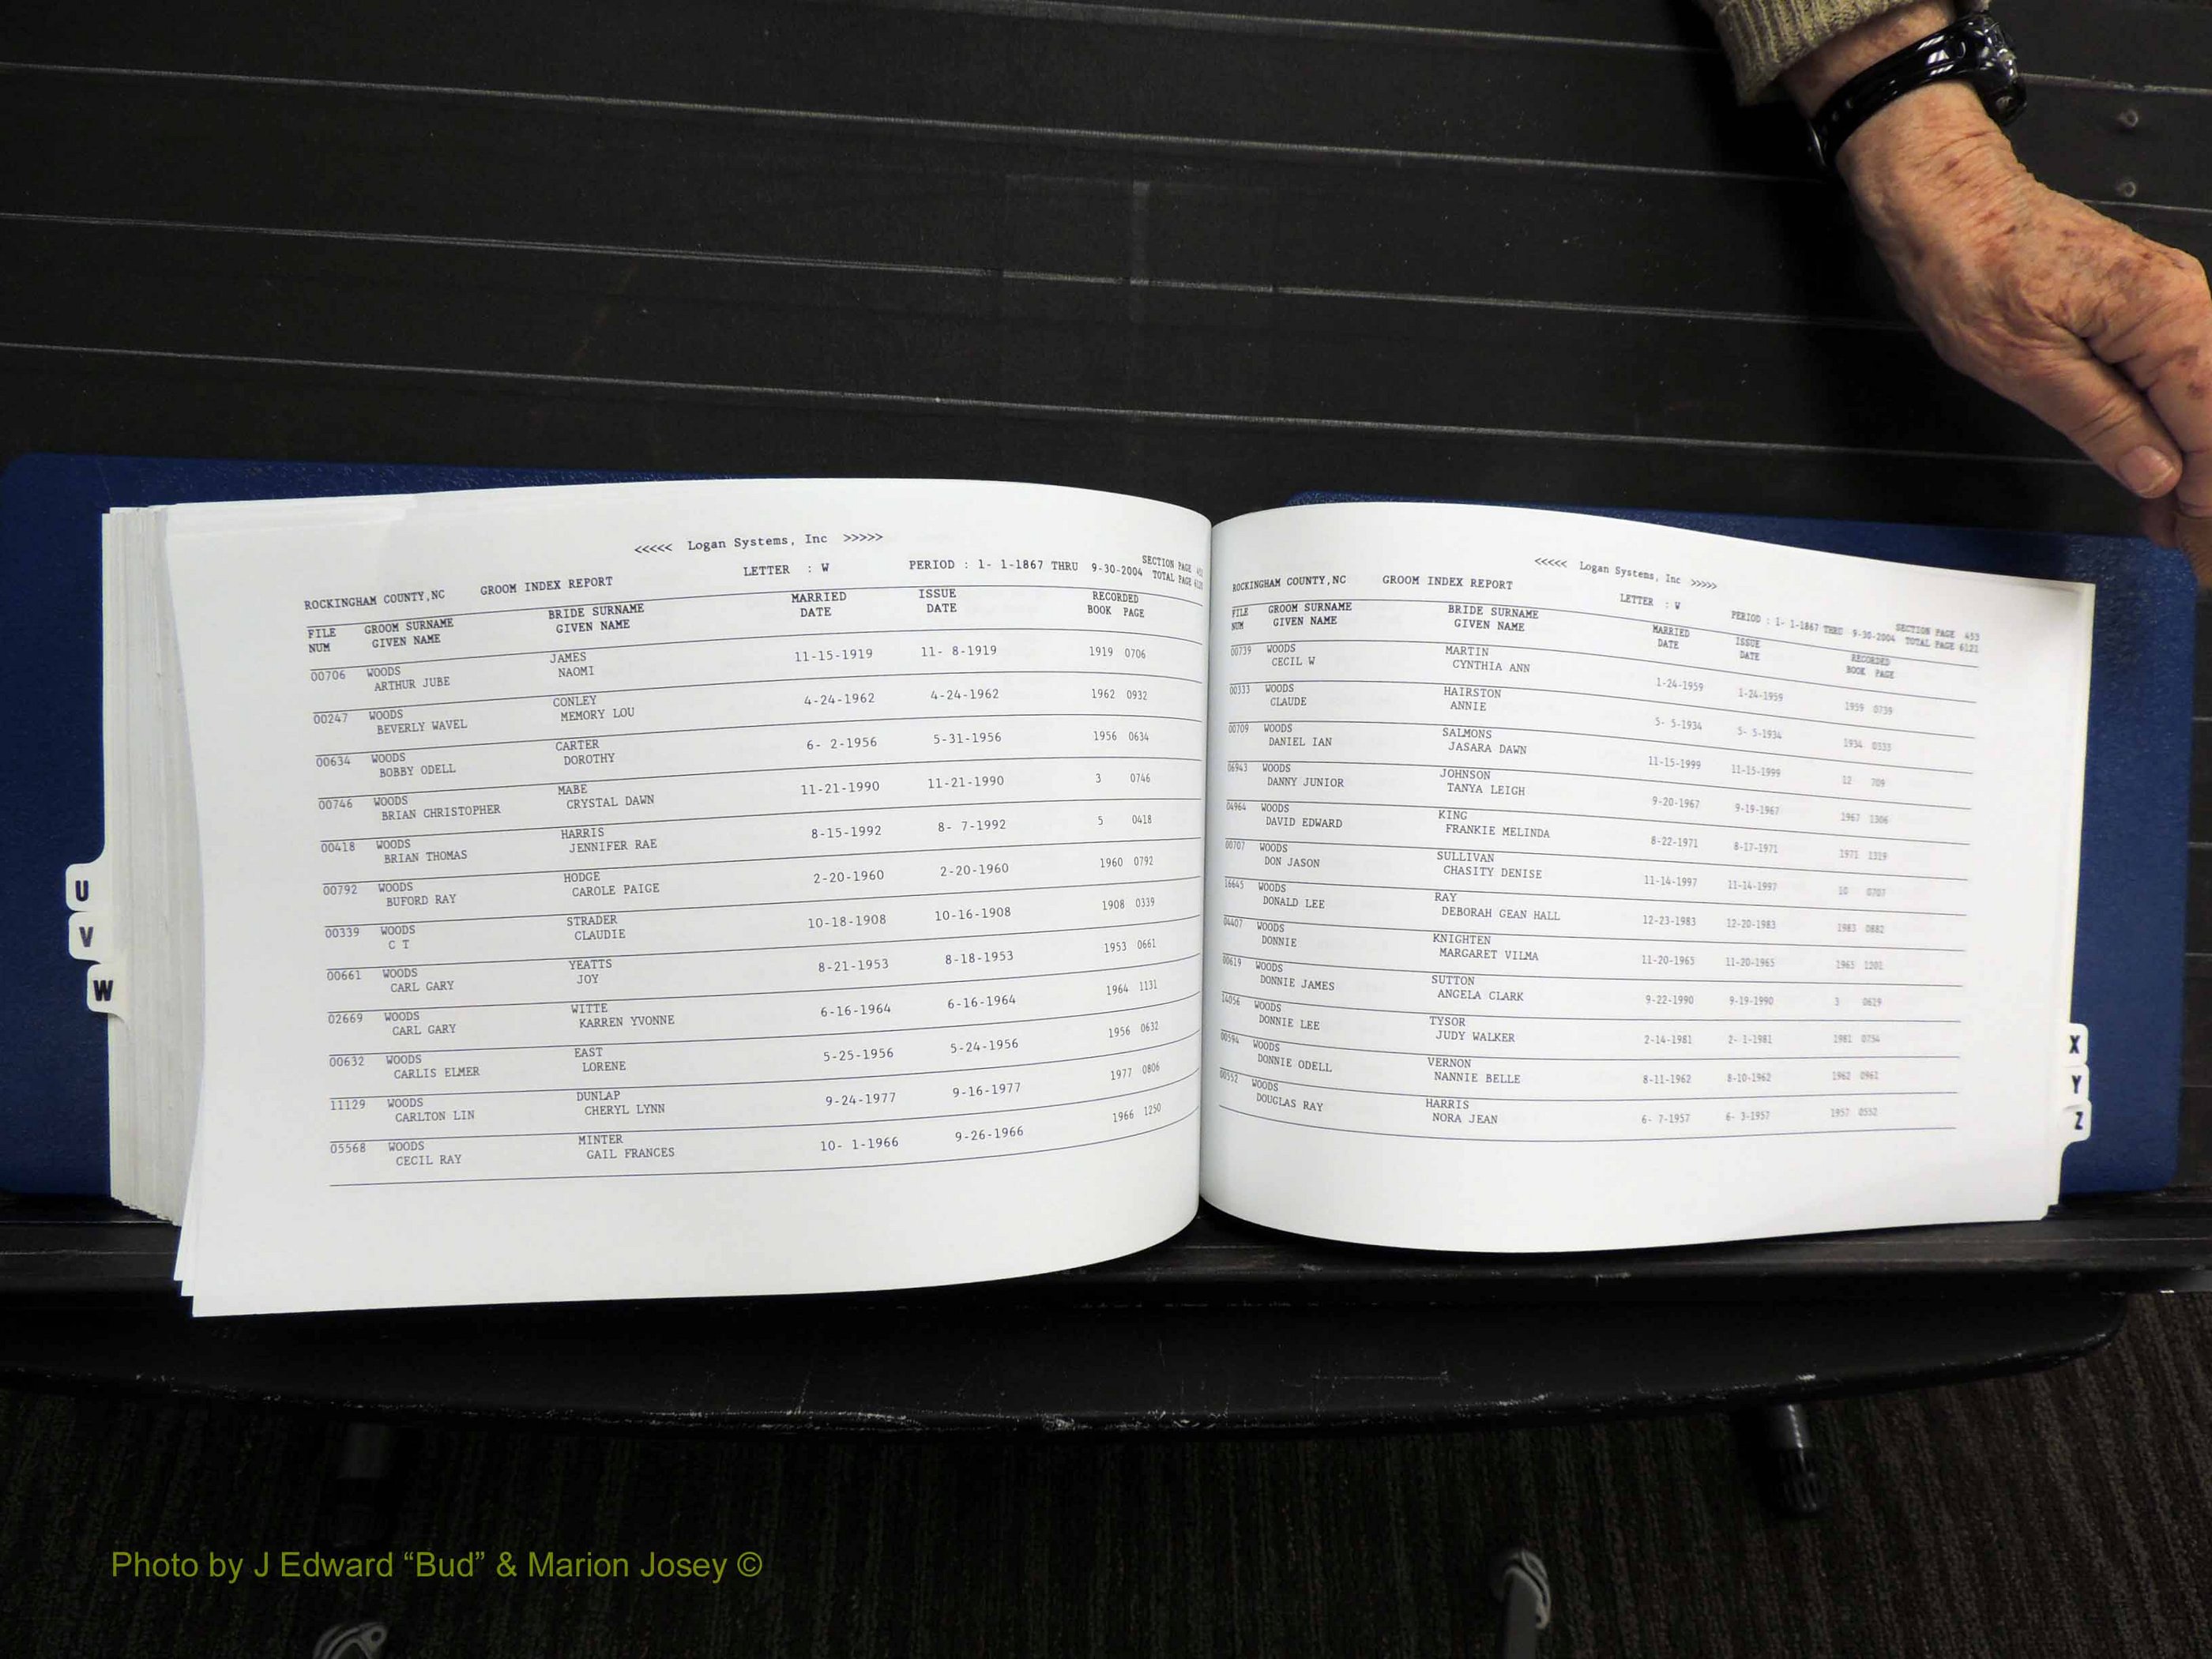 <<<<< Logan Systems, Inc >>>>>
ROCKINGHAM COUNTY,NC GROOM INDEX REPORT LETTER : W PERIOD : 1- 1-1867 THRU 9-30-2004 SECTION PAGE
TOTAL PAGE
FILE GROOM SURNAME BRIDE SURNAME MARRIED ISSUE RECORDED
NUM GIVEN NAME GIVEN NAME DATE DATE BOOK PAGE
00706 WOODS JAMES 11-15-1919 11- 8-1919 1919 0706
ARTHUR JUBE NAOMI
00247 WOODS CONLEY 4-24-1962 4-24-1962 1962 0932
BEVERLY WAVEL MEMORY LOU
00634 WOODS CARTER 6- 2-1956 5-31-1956 1956 0634
BOBBY ODELL DOROTHY
00746 WOODS MABE 11-21-1990 11-21-1990 3 0746
BRIAN CHRISTOPHER CRYSTAL DAWN
00418 WOODS HARRIS 8-15-1992 8- 7-1992 5 0418
BRIAN THOMAS JENNIFER RAE
00792 WOODS HODGE 2-20-1960 2-20-1960 1960 0792
BUFORD RAY CAROLE PAIGE
00339 WOODS STRADER 10-18-1908 10-16-1908 1908 0339
C T CLAUDIE
00661 WOODS YEATTS 8-21-1953 8-18-1953 1953 0661
CARL GARY JOY
02669 WOODS WITTE 6-16-1964 6-16-1964 1964 1131
CARL GARY KARREN YVONNE
00632 WOODS EAST 5-25-1956 5-24-1956 1956 0632
CARLIS ELMER LORENE
11129 WOODS DUNLAP 9-24-1977 9-16-1977 1977 0806
CARLTON LIN CHERYL LYNN
05568 WOODS MINTER 10- 1-1966 9-26-1966 1966 1250
CECIL RAY GAIL FRANCES
<<<<< Logan Systems, Inc >>>>>
ROCKINGHAM COUNTY,NC GROOM INDEX REPORT LETTER : W PERIOD : 1- 1-1867 THRU 9-30-2004 SECTION PAGE 453
TOTAL PAGE 6121
FILE GROOM SURNAME BRIDE SURNAME MARRIED ISSUE RECORDED
NUM GIVEN NAME GIVEN NAME DATE DATE BOOK PAGE
00739 WOODS MARTIN 1-24-1959 1-24-1959 1959 0739
CECIL W CYNTHIA ANN
00333 WOODS HAIRSTON 5- 5-1934 5- 5-1934 1934 0333
CLAUDE ANNIE
00709 WOODS SALMONS 11-15-1999 11-15-1999 12 709
DANIEL IAN JASARA DAWN
06943 WOODS JOHNSON 9-20-1967 9-19-1967 1967 1306
DANNY JUNIOR TANYA LEIGH
04964 WOODS KING 8-22-1971 8-17-1971 1971 1319
DAVID EDWARD FRANKIE MELINDA
00707 WOODS SULLIVAN 11-14-1997 11-14-1997 10 0707
DON JASON CHASITY DENISE
16645 WOODS RAY 12-23-1983 12-20-1983 1983 0882
DONALD LEE DEBORAH GEAN HALL
04407 WOODS KNIGHTEN 11-20-1965 11-20-1965 1965 1201
DONNIE MARGARET VILMA
00619 WOODS SUTTON 9-22-1990 9-19-1990 3 0619
DONNIE JAMES ANGELA CLARK
14056 WOODS TYSOR 2-14-1981 2- 1-1981 1981 0754
DONNIE LEE JUDY WALKER
00594 WOODS VERNON 8-11-1962 8-10-1962 1962 0961
DONNIE ODELL NANNIE BELLE
00552 WOODS HARRIS 6- 7-1957 6- 3-1957 1957 0552
DOUGLAS RAY NORA JEAN
U
V
W
X
Y
Z
Photo by J Edward “Bud” & Marion Josey ©